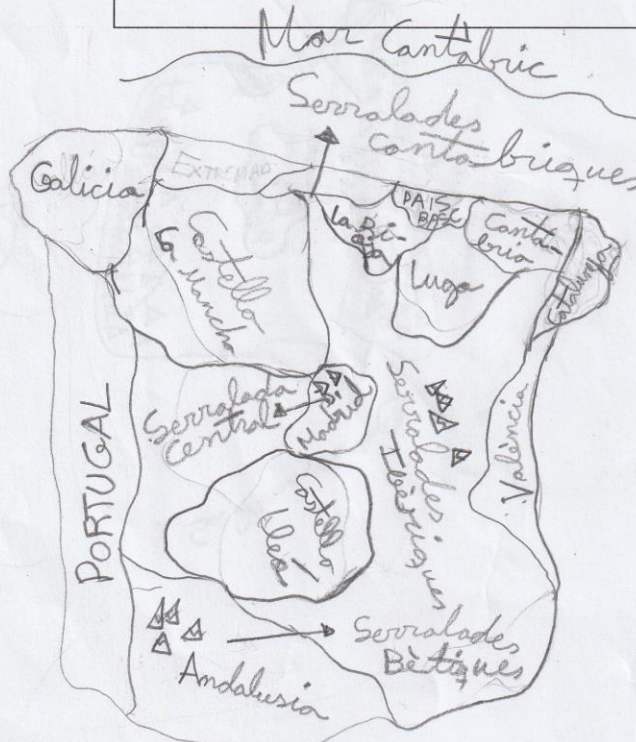 Mar Cantàbric
Serralades
cantabriques
Galicia
EXTREMAD
PAIS
BASC
La Ri-
oja
Canta-
bria
Catalunya
Lugo
Castello
La Mancha
Serralada
Central
Madrid
Serralades
Ibèriques
València
PORTUGAL
Castello
lleó
Serralades
Bètiques
Andalusia